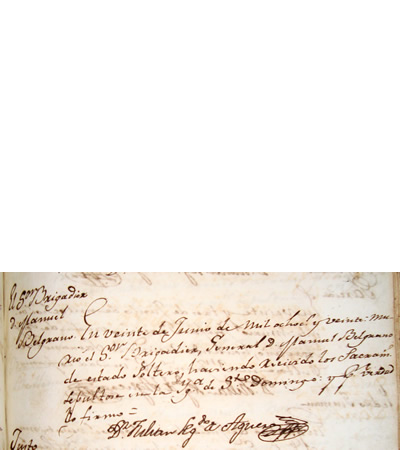 El Sor Brigadier
d. Manuel
Belgrano
En veinte de Junio de mil ochoc.s y veinte: mu-
rio el Sor Brigadier, General d. Manuel Belgrano
de estado soltero, haviendo recivido los Sacram.
sepultose en la Yg.a de Sto Domingo: y p.r verdad
lo firmo =
D.r Julian Seg.do de Aguero
Justo